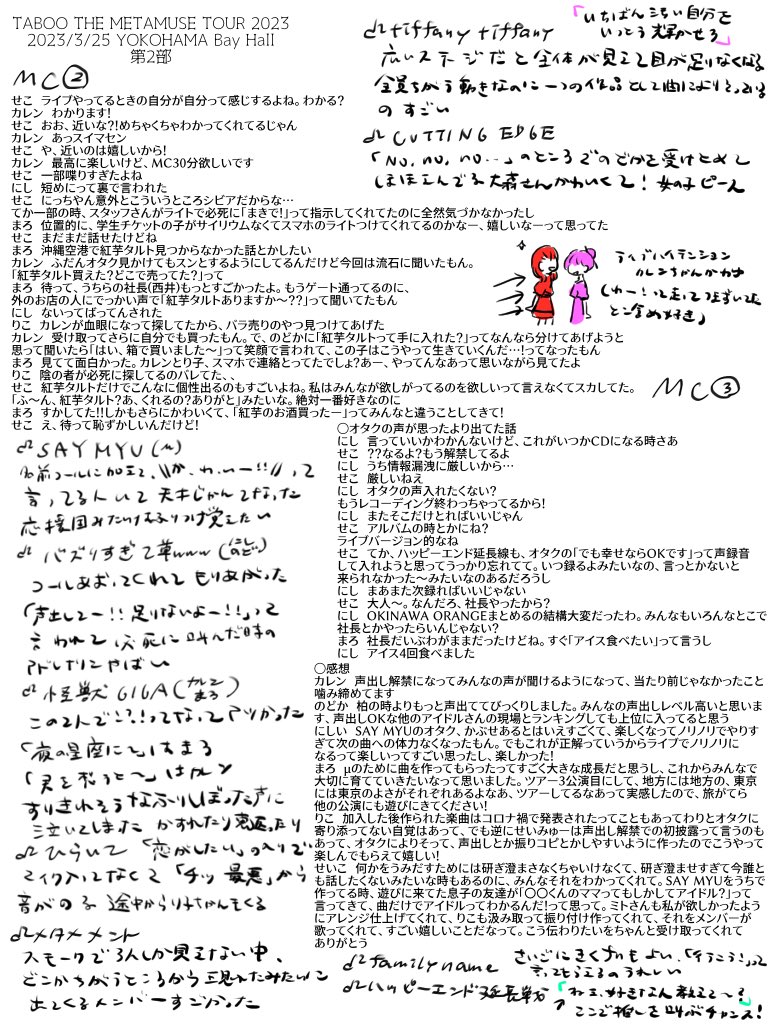 TABOO THE METAMUSE TOUR 2023
2023/3/25 YOKOHAMA Bay Hall
第2部
MC②
せこ ライブやってるときの自分が自分って感じするよね。わかる?
カレン わかります!
せこ おお、近いな?!めちゃくちゃわかってくれてるじゃん
カレン あっスイマセン
せこ や、近いのは嬉しいから!
カレン 最高に楽しいけど、MC30分欲しいです
せこ 一部喋りすぎたよね
にし 短めにって裏で言われた
せこ にっちゃん意外とこういうところシビアだからな…
てか一部の時、スタッフさんがライトで必死に「まきで!」って指示してくれてたのに全然気づかなかったし
まろ 位置的に、学生チケットの子がサイリウムなくてスマホのライトつけてくれてるのかなー、嬉しいなーって思ってた
せこ まだまだ話せたけどね
まろ 沖縄空港で紅芋タルト見つからなかった話とかしたい
カレン ふだんオタク見かけてもスンとするようにしてるんだけど今回は流石に聞いたもん。
「紅芋タルト買えた?どこで売ってた?」って
まろ 待って、うちらの社長(西井)もっとすごかったよ。もうゲート通ってるのに、
外のお店の人にでっかい声で「紅芋タルトありますか～??」って聞いてたもん
にし ないってばってんされた
りこ カレンが血眼になって探してたから、バラ売りのやつ見つけてあげた
カレン 受け取ってさらに自分でも買ったもん。で、のどかに「紅芋タルトって手に入れた?」ってなんなら分けてあげようと
思って聞いたら「はい、箱で買いました～」って笑顔で言われて、この子はこうやって生きていくんだ…!ってなったもん
まろ 見てて面白かった。カレンとり子、スマホで連絡とってたでしょ?あー、やってんなあって思いながら見てたよ
りこ 陰の者が必死に探してるのバレてた、、
せこ 紅芋タルトだけでこんなに個性出るのもすごいよね。私はみんなが欲しがってるのを欲しいって言えなくてスカしてた。
「ふ～ん、紅芋タルト?あ、くれるの?ありがと」みたいな。絶対一番好きなのに
まろ すかしてた!!しかもさらにかわいくて、「紅芋のお酒買ったー」ってみんなと違うことしてきて!
せこ え、待って恥ずかしいんだけど!
♫SAY MYU(μ)
名前コールに加えて、\\か、わ、いー!!//って
言ってる人いて天才じゃんてなった
♫バズりすぎて草www
コールあおってくれてもりあがった
「声出してー!!足りないよー!!」って
言われて必死に叫んだ時の
アドレナリンやばい
♫怪獣GIGA(カレン まろ)
「夜の星座に」はまろ
「君を想うと～」はカレン
♫ひらいて「恋がしたい」の入りで
マイク入ってなくて「チッ 最悪」から
♫メタメメント
スモークで3人しか見えない中、
どこかちがうところから現れたみたいに
出てくるメンバーすごかった
♫tiffany tiffany
「いちばん う自分を
いっとう輝かせろ」
広いステージだと全体が見えて目が足りなくなる
全員ちがう動きなのに一つの作品として曲により
のすごい
♫CUTTING EDGE
「No, no, no…」のところでのどかを受けとめて
ほほえんでる大森さんかわいくて! 女の子ピース
ライブハイテンション
カレンちゃんかわゆ
MC③
○オタクの声が思ったより出てた話
にし 言っていいかわかんないけど、これがいつかCDになる時さあ
せこ ??なるよ?もう解禁してるよ
にし うち情報漏洩に厳しいから…
せこ 厳しいねえ
にし オタクの声入れたくない?
もうレコーディング終わっちゃってるから!
にし またそこだけとればいいじゃん
せこ アルバムの時とかにね?
ライブバージョン的なね
せこ てか、ハッピーエンド延長線も、オタクの「でも幸せならOKです」って声録音
して入れようと思ってうっかり忘れてて。いつ録るよみたいなの、言っとかないと
来られなかった～みたいなのあるだろうし
にし まあまた次録ればいいじゃない
せこ 大人～。なんだろ、社長やったから?
にし OKINAWA ORANGEまとめるの結構大変だったわ。みんなもいろんなとこで
社長とかやったらいんじゃない?
まろ 社長だいぶわがままだったけどね。すぐ「アイス食べたい」って言うし
にし アイス4回食べました
○感想
カレン 声出し解禁になってみんなの声が聞けるようになって、当たり前じゃなかったこと
噛み締めてます
のどか 柏の時よりもっと声出ててびっくりしました。みんなの声出しレベル高いと思いま
す、声出しOKな他のアイドルさんの現場とランキングしても上位に入ってると思う
にしい SAY MYUのオタク、かぶせあるとはいえすごくて、楽しくなってノリノリでやりす
ぎて次の曲への体力なくなったもん。でもこれが正解っていうからライブでノリノリに
なるって楽しいってすごい思ったし、楽しかった!
まろ μのために曲を作ってもらったってすごく大きな成長だと思うし、これからみんなで
大切に育てていきたいなって思いました。ツアー3公演目にして、地方には地方の、東京
には東京のよさがそれぞれあるよなあ、ツアーしてるなあって実感したので、旅がてら
他の公演にも遊びにきてください!
りこ 加入した後作られた楽曲はコロナ禍で発表されたってこともあってわりとオタクに
寄り添ってない自覚はあって、でも逆にせいみゅーは声出し解禁での初披露って言うのも
あって、オタクによりそって、声出しとか振りコピとかしやすいように作ったのでこうやって
楽しんでもらえて嬉しい!
せいこ 何かをうみだすためには研ぎ澄まさなくちゃいけなくて、研ぎ澄ませすぎて今誰と
も話したくないみたいな時もあるのに、みんなそれをわかってくれて。SAY MYUをうちで
作ってる時、遊びに来てた息子の友達が「〇〇くんのママってもしかしてアイドル?」って
言ってきて、曲だけでアイドルってわかるんだ!って思って。ミトさんも私が欲しかったよう
にアレンジ仕上げてくれて、りこも汲み取って振り付け作ってくれて、それをメンバーが
歌ってくれて、すごい嬉しいことだなって。こう伝わりたいをちゃんと受け取ってくれて
ありがとう
♫family name
♫ハッピーエンド延長戦
「ねえ、好きな人教えて～?」
ここで推しを叫ぶチャンス!